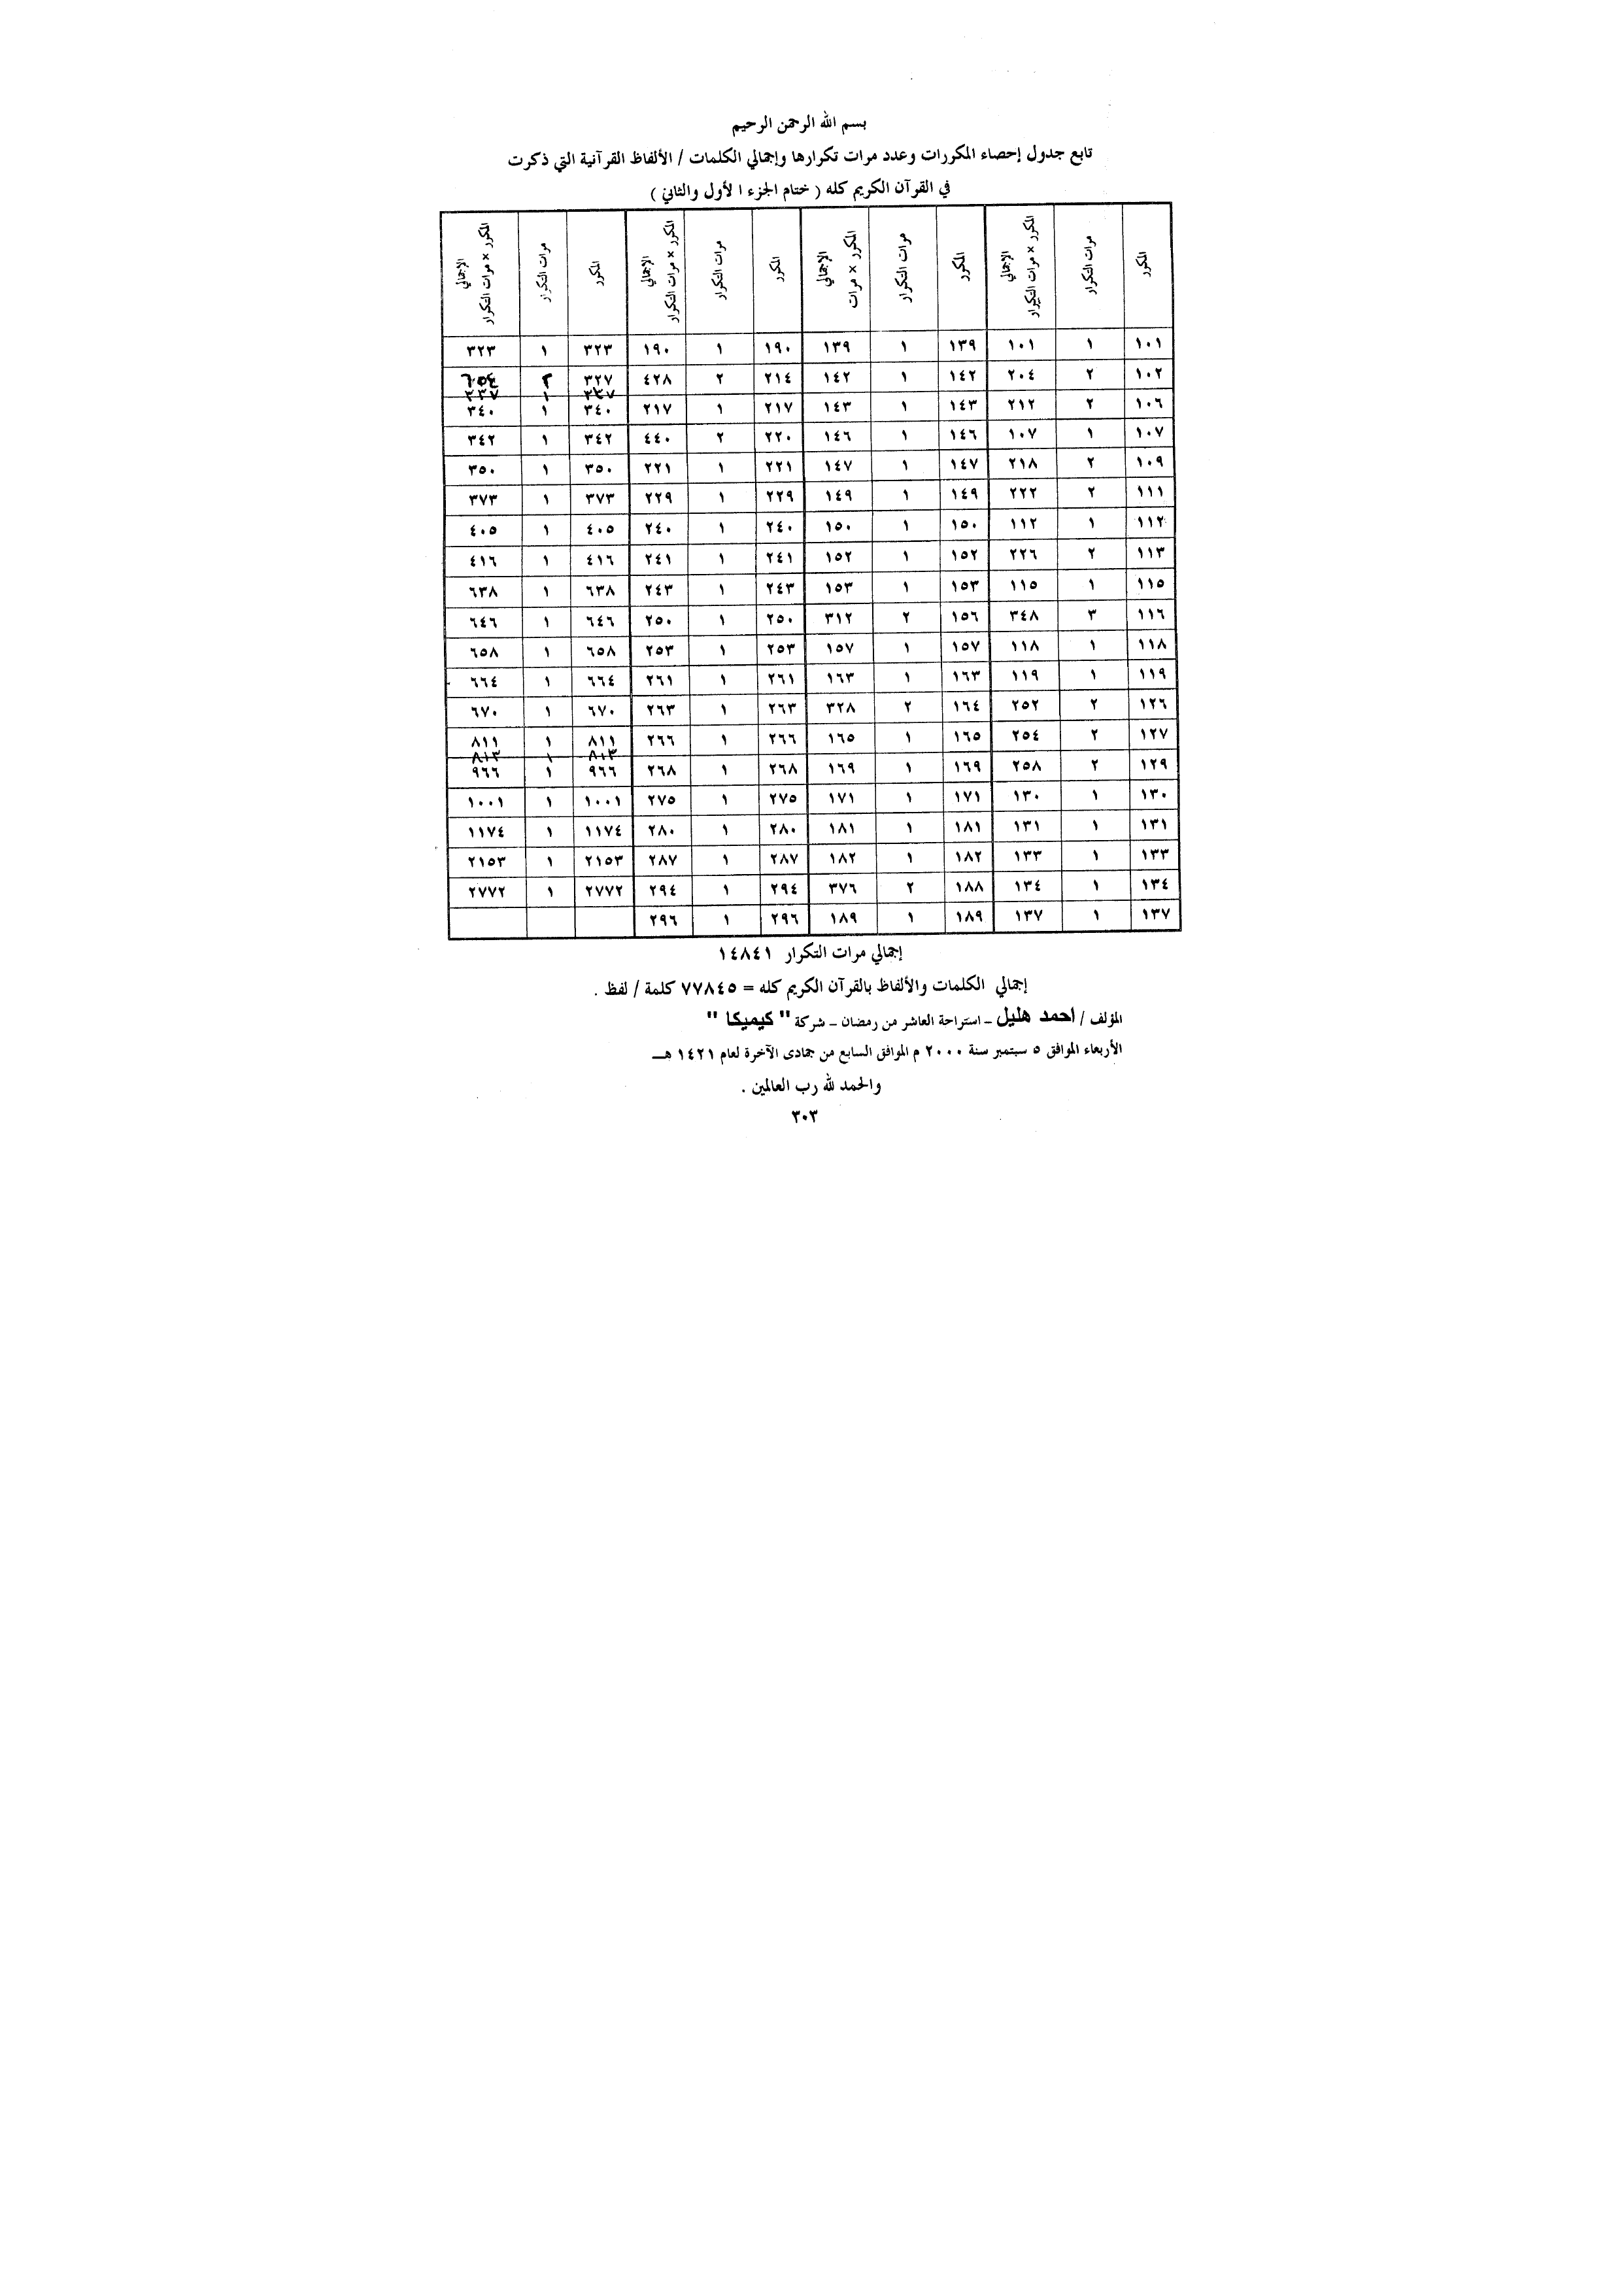 بسم الله الرحمن الرحيم
تابع جدول إحصاء المكررات وعدد مرات تكرارها وإجمالي الكلمات / الألفاظ القرآنية التي ذكرت
في القرآن الكريم كله ( ختام الجزء الأول والثاني )
المكرر مرات التكرار الإجمالي المكرر × مرات التكرار المكرر مرات التكرار الإجمالي المكرر × مرات المكرر مرات التكرار الإجمالي المكرر × مرات التكرار المكرر مرات التكرار الإجمالي المكرر × مرات التكرار
١٠١ ١ ١٠١ ١٣٩ ١ ١٣٩ ١٩٠ ١ ١٩٠ ٣٢٣ ١ ٣٢٣
١٠٢ ٢ ٢٠٤ ١٤٢ ١ ١٤٢ ٢١٤ ٢ ٤٢٨ ٣٢٧ ٢ ٦٥٤
٣٣٧ ١ ٣٣٧
١٠٦ ٢ ٢١٢ ١٤٣ ١ ١٤٣ ٢١٧ ١ ٢١٧ ٣٤٠ ١ ٣٤٠
١٠٧ ١ ١٠٧ ١٤٦ ١ ١٤٦ ٢٢٠ ٢ ٤٤٠ ٣٤٢ ١ ٣٤٢
١٠٩ ٢ ٢١٨ ١٤٧ ١ ١٤٧ ٢٢١ ١ ٢٢١ ٣٥٠ ١ ٣٥٠
١١١ ٢ ٢٢٢ ١٤٩ ١ ١٤٩ ٢٢٩ ١ ٢٢٩ ٣٧٣ ١ ٣٧٣
١١٢ ١ ١١٢ ١٥٠ ١ ١٥٠ ٢٤٠ ١ ٢٤٠ ٤٠٥ ١ ٤٠٥
١١٣ ٢ ٢٢٦ ١٥٢ ١ ١٥٢ ٢٤١ ١ ٢٤١ ٤١٦ ١ ٤١٦
١١٥ ١ ١١٥ ١٥٣ ١ ١٥٣ ٢٤٣ ١ ٢٤٣ ٦٣٨ ١ ٦٣٨
١١٦ ٣ ٣٤٨ ١٥٦ ٢ ٣١٢ ٢٥٠ ١ ٢٥٠ ٦٤٦ ١ ٦٤٦
١١٨ ١ ١١٨ ١٥٧ ١ ١٥٧ ٢٥٣ ١ ٢٥٣ ٦٥٨ ١ ٦٥٨
١١٩ ١ ١١٩ ١٦٣ ١ ١٦٣ ٢٦١ ١ ٢٦١ ٦٦٤ ١ ٦٦٤
١٢٦ ٢ ٢٥٢ ١٦٤ ٢ ٣٢٨ ٢٦٣ ١ ٢٦٣ ٦٧٠ ١ ٦٧٠
١٢٧ ٢ ٢٥٤ ١٦٥ ١ ١٦٥ ٢٦٦ ١ ٢٦٦ ٨١١ ١ ٨١١
٨١٣ ١ ٨١٣
١٢٩ ٢ ٢٥٨ ١٦٩ ١ ١٦٩ ٢٦٨ ١ ٢٦٨ ٩٦٦ ١ ٩٦٦
١٣٠ ١ ١٣٠ ١٧١ ١ ١٧١ ٢٧٥ ١ ٢٧٥ ١٠٠١ ١ ١٠٠١
١٣١ ١ ١٣١ ١٨١ ١ ١٨١ ٢٨٠ ١ ٢٨٠ ١١٧٤ ١ ١١٧٤
١٣٣ ١ ١٣٣ ١٨٢ ١ ١٨٢ ٢٨٧ ١ ٢٨٧ ٢١٥٣ ١ ٢١٥٣
١٣٤ ١ ١٣٤ ١٨٨ ٢ ٣٧٦ ٢٩٤ ١ ٢٩٤ ٢٧٧٢ ١ ٢٧٧٢
١٣٧ ١ ١٣٧ ١٨٩ ١ ١٨٩ ٢٩٦ ١ ٢٩٦
إجمالي مرات التكرار ١٤٨٤١
إجمالي الكلمات والألفاظ بالقرآن الكريم كله = ٧٧٨٤٥ كلمة / لفظ .
المؤلف / أحمد هليل – استراحة العاشر من رمضان – شركة " كيميكا "
الأربعاء الموافق ٥ سبتمبر سنة ٢٠٠٠ م الموافق السابع من جمادى الآخرة لعام ١٤٢١ هـ
والحمد لله رب العالمين .
٣٠٣